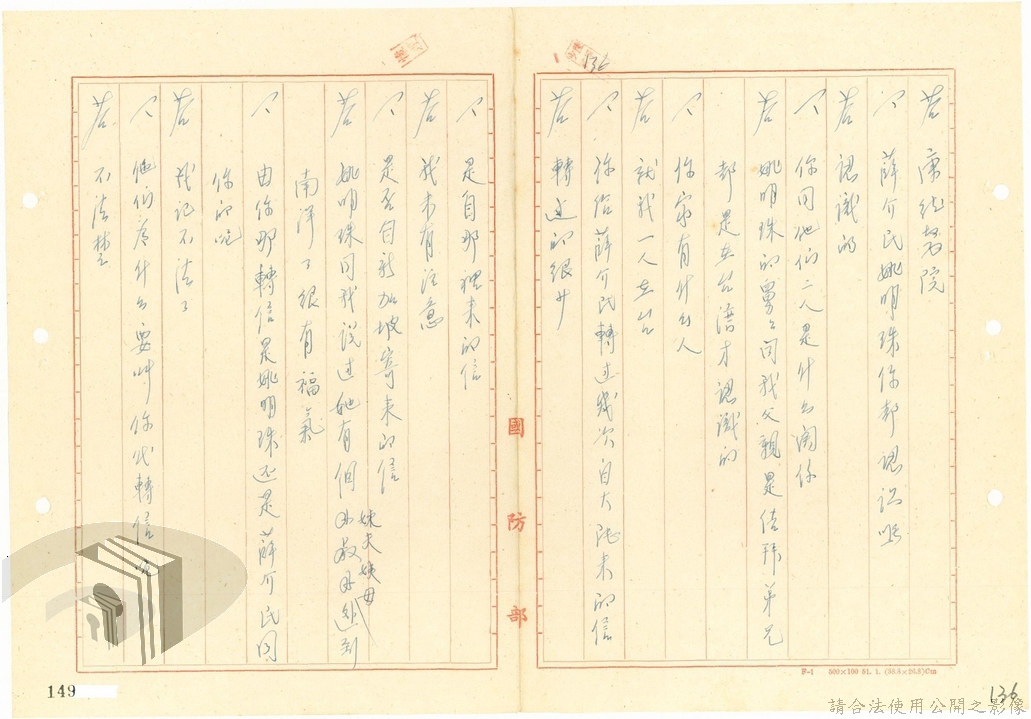 136
答 康能醫院
〃 薛介民姚明珠你都認識嗎
答 認識的
〃 你同他们二人是什么関係
答 姚明珠的舅舅同我父親是结拜弟兄
都是在台湾才認識的
〃 你家有什么人
答 就我一人在台
〃 你给薛介民轉过幾次自大陆来的信
答 轉过的很少
國防部
F-1 300×100 51. 1. (38.4×26.8)Cm
〃 是自那裡来的信
答 我未有注意
〃 是否自新加坡寄来的信
答 姚明珠同我说过她有個妹夫姨母到
南洋了很有福氣
〃 由你那轉信是姚明珠还是薛介民同
你的呢
答 我记不清了
〃 他们为什么要叫你代轉信呢
答 不清楚
149
136
請合法使用公開之影像